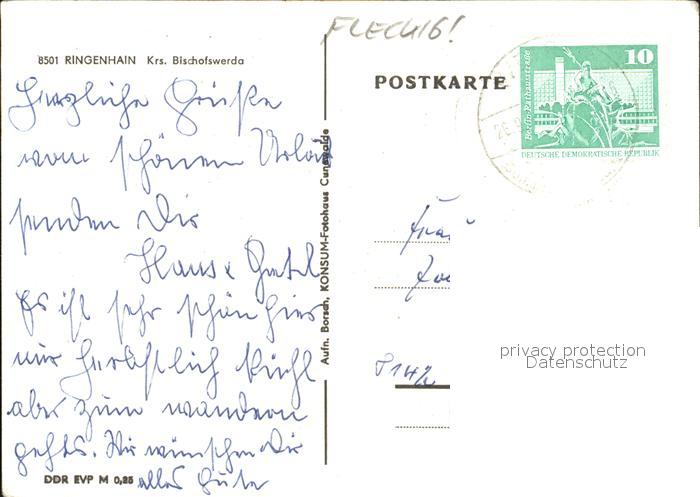 FLECKIG!
8501 RINGENHAIN Krs. Bischofswerda
Herzliche Grüße
vom schönen Urlaub
senden Dir
Hans & Gretel
Es ist sehr schön hier
nur herbstlich kühl
aber zum wandern
gehts. Wir wünschen Dir
alles Gute
DDR EVP M 0,25
Aufn. Borsch, KONSUM-Fotohaus Cunewalde
POSTKARTE
10
Berlin-Rathausstraße
DEUTSCHE DEMOKRATISCHE REPUBLIK
Frau
privacy protection
Datenschutz